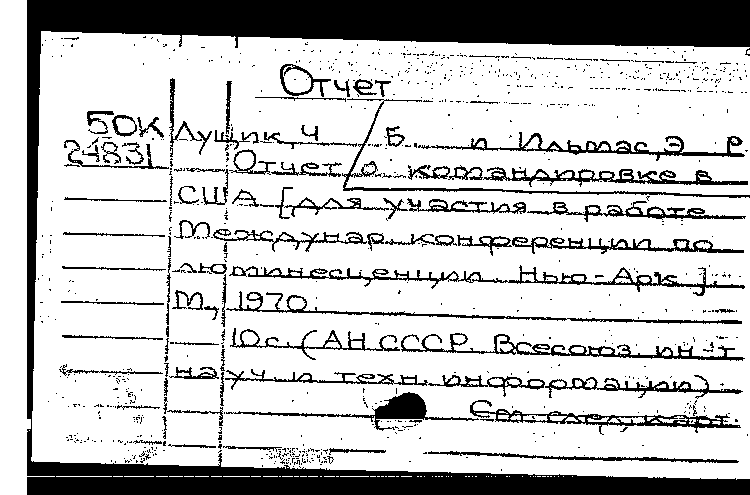 Отчет
5DK Лущик, Ч Б. и Ильмас, Э Р
24831 Отчет о командировке в
США [для участия в работе
Междунар. конференции по
люминесценции. Нью-Арк].
М., 1970.
10с. (АН СССР. Всесоюз. ин-т
науч. и техн. информации)
См. след. карт.